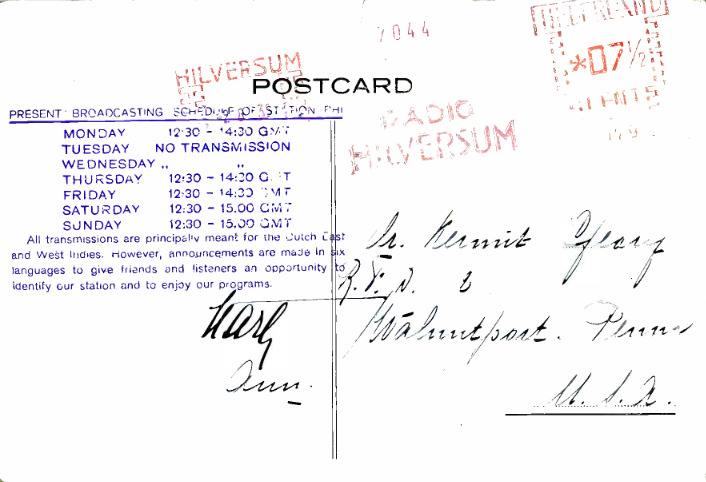 7044
NEDERLAND
*07½
CENTS
HILVERSUM
POSTCARD
RADIO
HILVERSUM
PRESENT BROADCASTING SCHEDULE OF STATION PHI
MONDAY 12:30 - 14:30 GMT
TUESDAY NO TRANSMISSION
WEDNESDAY „ „
THURSDAY 12:30 - 14:30 GMT
FRIDAY 12:30 - 14:30 GMT
SATURDAY 12:30 - 15.00 GMT
SUNDAY 12:30 - 15.00 GMT
All transmissions are principally meant for the Dutch East
and West Indies. However, announcements are made in six
languages to give friends and listeners an opportunity to
identify our station and to enjoy our programs.
Kermit Geary
R. F. D. 2
Walnutport. Penna
U. S. A.